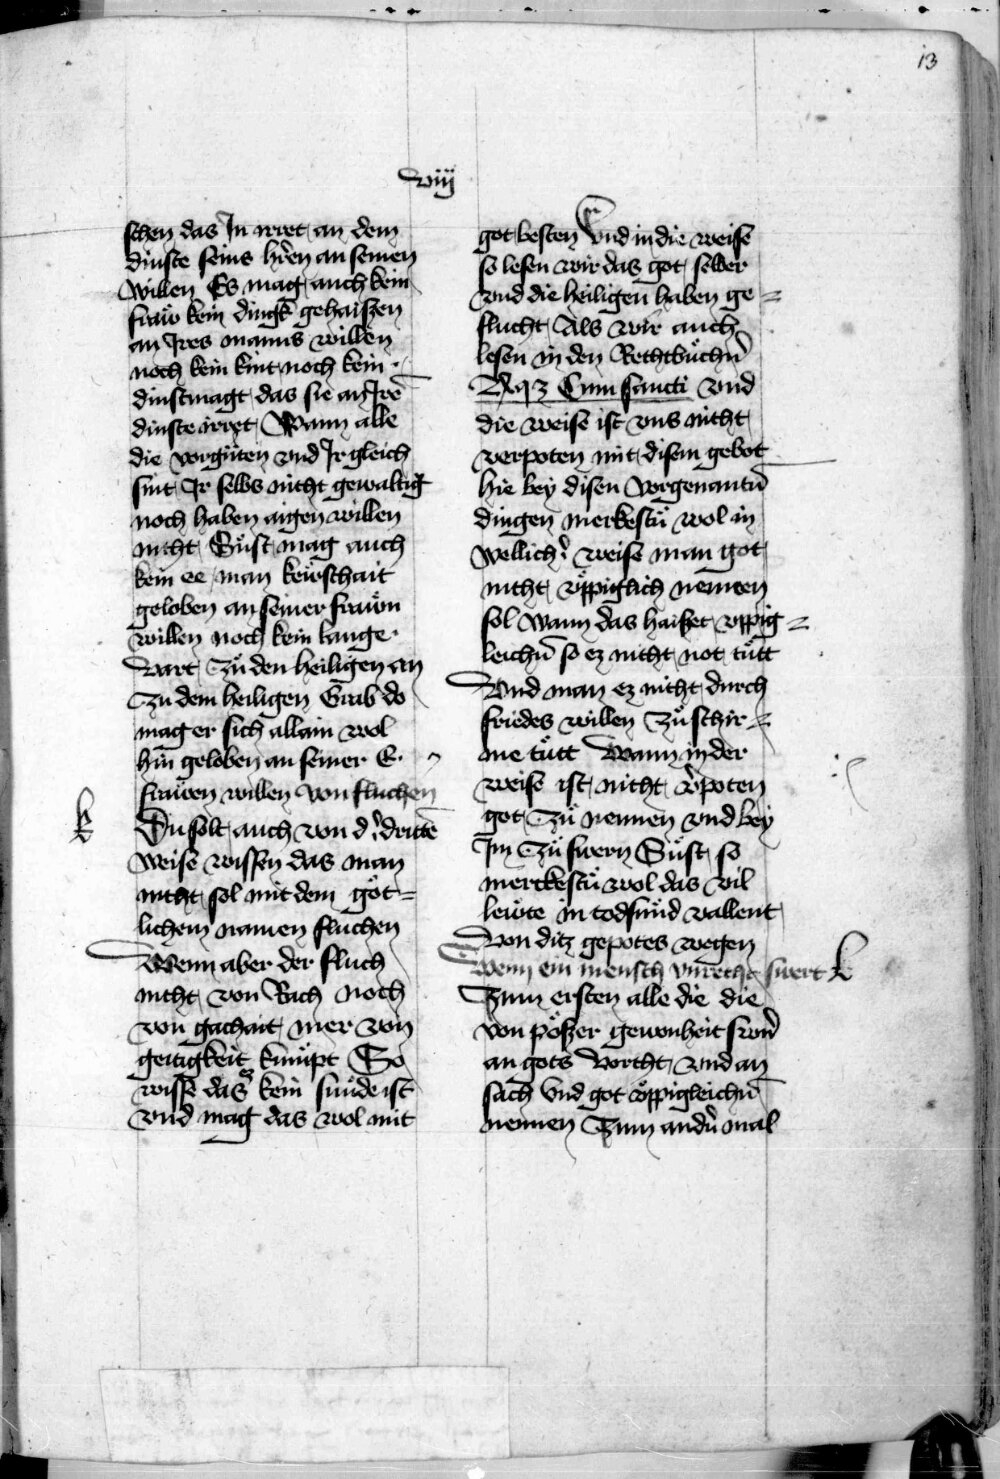 13
viij
schen das In irret an dem
dinste seins hren an seinen
willen Es mag auch kein
fraw kein dingk gehaiszen
an Ires manns willen
noch kein kint noch kein
dinstmagt das sie an Ire
dinste irret Wann alle
die vorgüten vnd Ir gleich
sint Ir selbs nicht gewaltig
noch haben aigen willen
nicht Süst mag auch
kein ee man kewschait
geloben an seiner frawn
willen noch kein lange
vart Zu den heiligen an
Zu dem heiligen Grab do
mag er sich allain wol
hin geloben an seiner E
frawen willen von fluchen
Du solt auch von d' dritte
weise wissen das man
nicht sol mit dem göt=
lichem namen fluchen
Wenn aber der fluch
nicht von Rach noch
von gachait mer von
geitigkeit kumpt So
wisse das ez kein sunde ist
vnd mag das wol mit
got besten Vnd in die weise
so lesen wir das got selber
vnd die heiligen haben ge=
flucht Als wir auch
lesen in den Rechtbuchn̄
Cum sancti vnd
die weise ist vns nicht
verpoten mit disem gebot
hie bey disen vorgenantn̄
dingen merkestu wol in
wellich' weise man got
nicht vppiglich nennen
sol wann das haiszet vppig=
leichn̄ so ez nicht not tütt
Vnd man ez nicht durch
friedes willen Zü schir=
me tütt Wann in der
weise ist nicht v'poten
got Zü nennen vnd bey
Im Zü swern Süst so
merckestu wol das vil
lewte in todsund vallent
Von ditz gepotes wegen
Wenn ein mensch vnrecht swert k
Zum ersten alle die die
von pöszer gewonheit swn̄
an gots vorcht vnd an
sach Vnd got vppigleichn̄
nennen Zum andn̄ mal